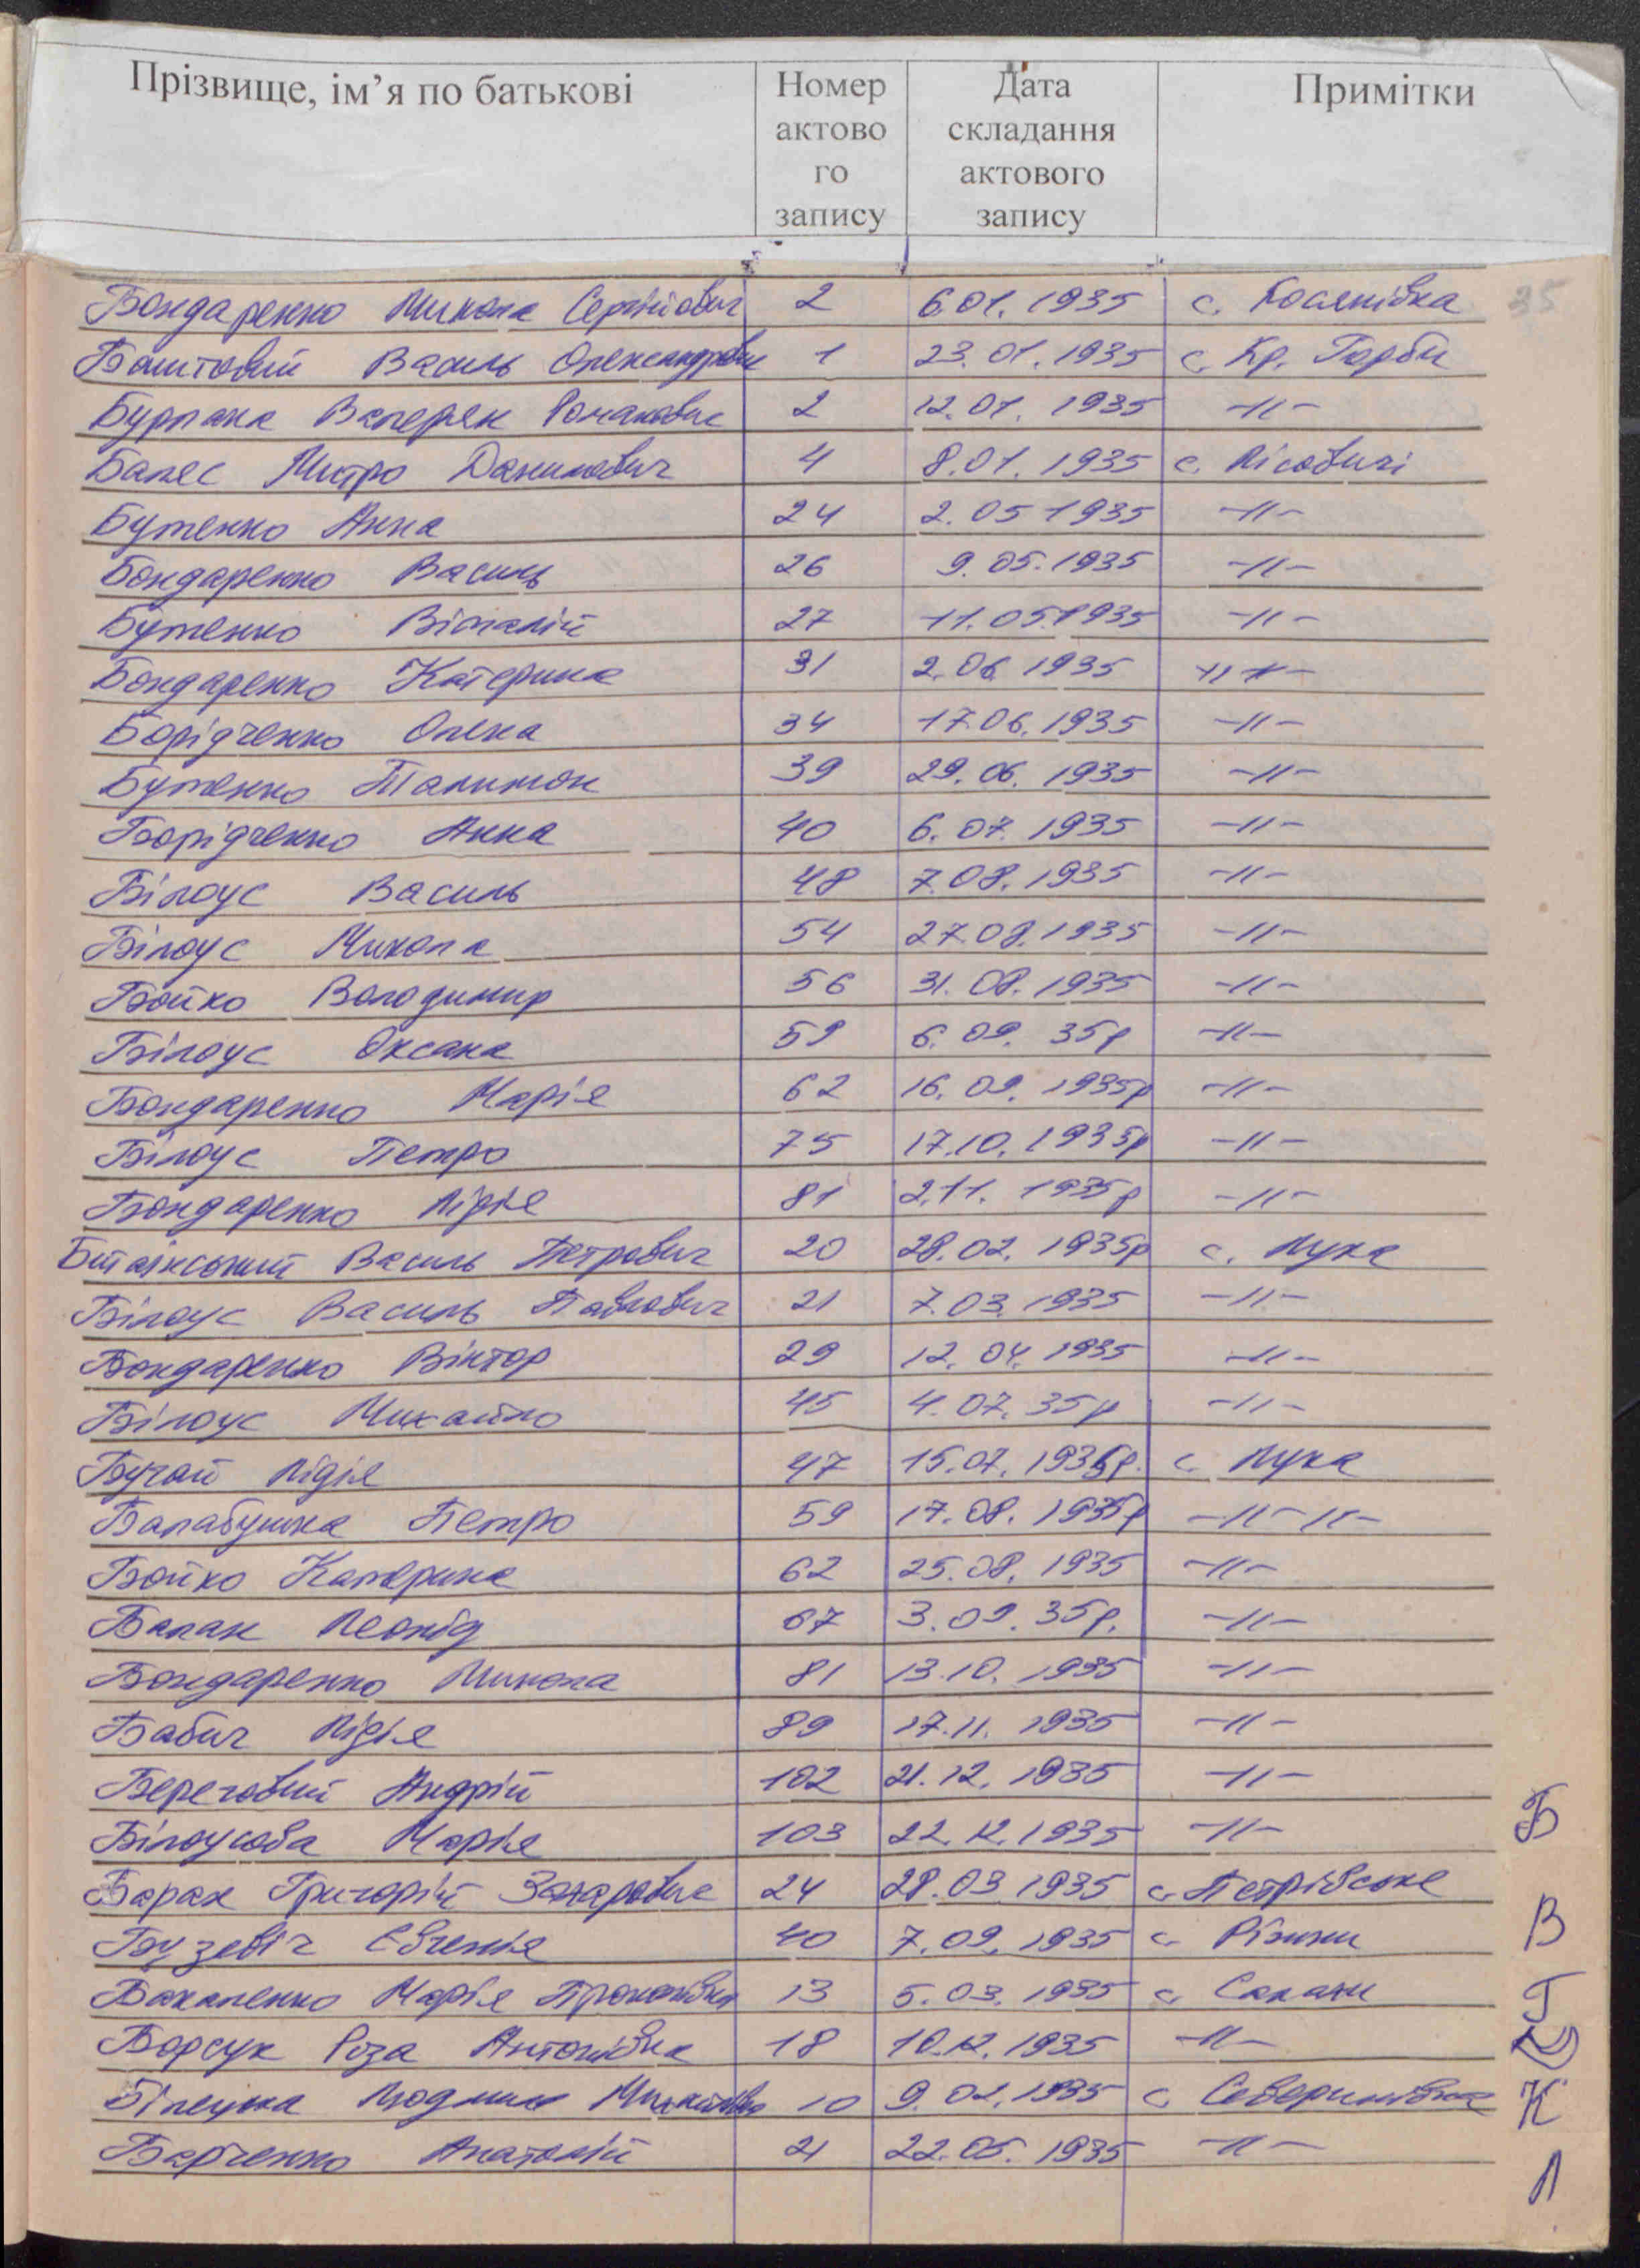 Прізвище, ім’я по батькові Номер актово го запису Дата складання актового запису Примітки
35
Бондаренко Микола Сергійович 2 6.01.1935 с. Косянівка
Баштовий Василь Олександрович 1 23.01.1935 с. Кр. Горби
Бурлака Валерян Романович 2 12.01.1935 -//-
Балес Митро Данилович 4 8.01.1935 с. Лісовичі
Бутенко Анна 24 2.05 1935 -//-
Бондаренко Василь 26 9.05.1935 -//-
Бутенко Віталій 27 11.05.1935 -//-
Бондаренко Катерина 31 2.06 1935 -//-
Борідченко Олена 34 17.06.1935 -//-
Бутенко Палимон 39 29.06.1935 -//-
Борідченко Анна 40 6.07.1935 -//-
Білоус Василь 48 7.08.1935 -//-
Білоус Микола 54 27.08.1935 -//-
Бойко Володимир 56 31.08.1935 -//-
Білоус Оксана 59 6.09.35р -//-
Бондаренко Марія 62 16.09.1935р -//-
Білоус Петро 75 17.10.1935р -//-
Бондаренко Лідія 81 2.11.1935р -//-
Василь Петрович 20 28.02.1935р с. Лука
Білоус Василь Павлович 21 7.03.1935 -//-
Бондаренко Віктор 29 12.04.1935 -//-
Білоус Михайло 45 4.07.35р -//-
Бучай Лідія 47 15.07.1935р. с. Лука
Балабушка Петро 59 17.08.1935р -//-//-
Бойко Катерина 62 25.08.1935 -//-
Балан Леонід 67 3.09.35р. -//-
Бондаренко Микола 81 13.10.1935 -//-
Бабич Лідія 89 17.11.1935 -//-
Береговий Андрій 102 21.12.1935 -//-
Білоусова Марія 103 22.12.1935 -//-
Баран Григорій Захарович 24 28.03.1935 с. Петрівське
Бузевіч Євгенія 40 7.09.1935 с. Ріжки
Бакаленко Марія Прокопівна 13 5.03.1935 с. Салани
Борсук Роза Антонівна 18 10.12.1935 -//-
Білецька Людмила Михайлівна 10 9.02.1935 с. Северинівка
Барченко Анатолій 21 22.05.1935 -//-
Б
В
Г
Д
К
Л